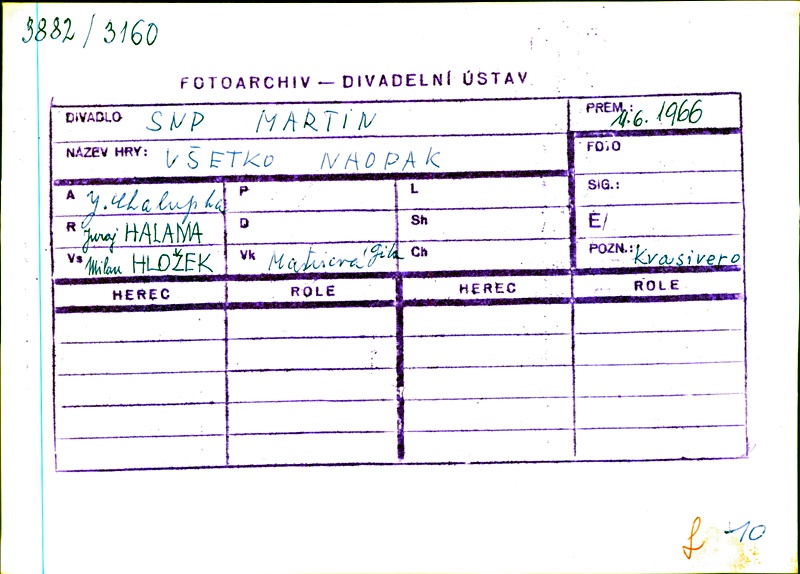 3882 / 3160
FOTOARCHIV — DIVADELNÍ ÚSTAV
DIVADLO SNP MARTIN
PREM.: 11.6. 1966
NÁZEV HRY: VŠETKO NAOPAK
FOTO
A J. Chalupka P L SIG.:
R Juraj HALAMA D Sh É/
Vs Milan HLOŽEK Vk Gita Ch POZN.: Krasivero
HEREC ROLE HEREC ROLE
10